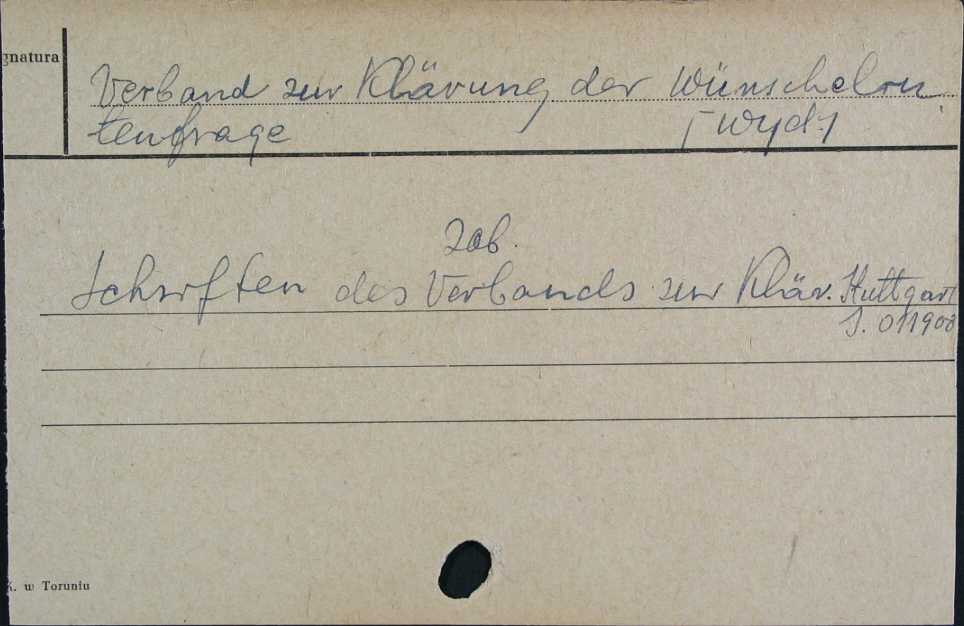 gnatura
Verband zur Klärung der Wünschelru
tenfrage [wyd.]
zob.
Schriften des Verbands zur Klär. Stuttgart
S. 011908
K. w Toruniu